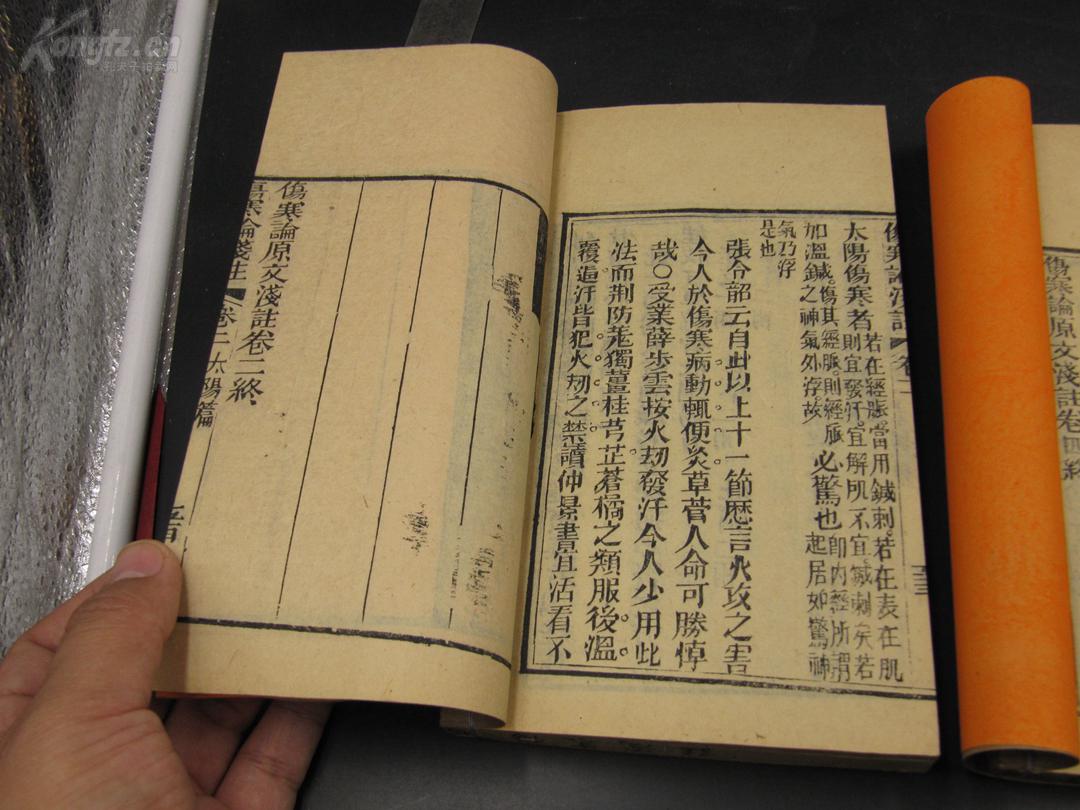 傷寒論淺註 卷二
太陽傷寒者若在經脈當用鍼刺若在表在肌則宜發汗宜解肌不宜鍼刺矣若
加溫鍼傷其經脈則經脈之神氣外浮故必驚也即內經所謂起居如驚神
氣乃浮是也
張令韶云自此以上十一節歷言火攻之害
今人於傷寒病動輒便灸草菅人命可勝悼
哉〇受業薛步雲按火刼發汗今人少用此
法而荆防羌獨薑桂芎芷蒼橘之類服後溫
覆逼汗皆犯火刼之禁讀仲景書宜活看不
傷寒論原文淺註卷二終
傷寒論淺註 卷二 太陽篇
傷寒論原文淺註卷四終
Kongfz.cn
孔夫子旧书网